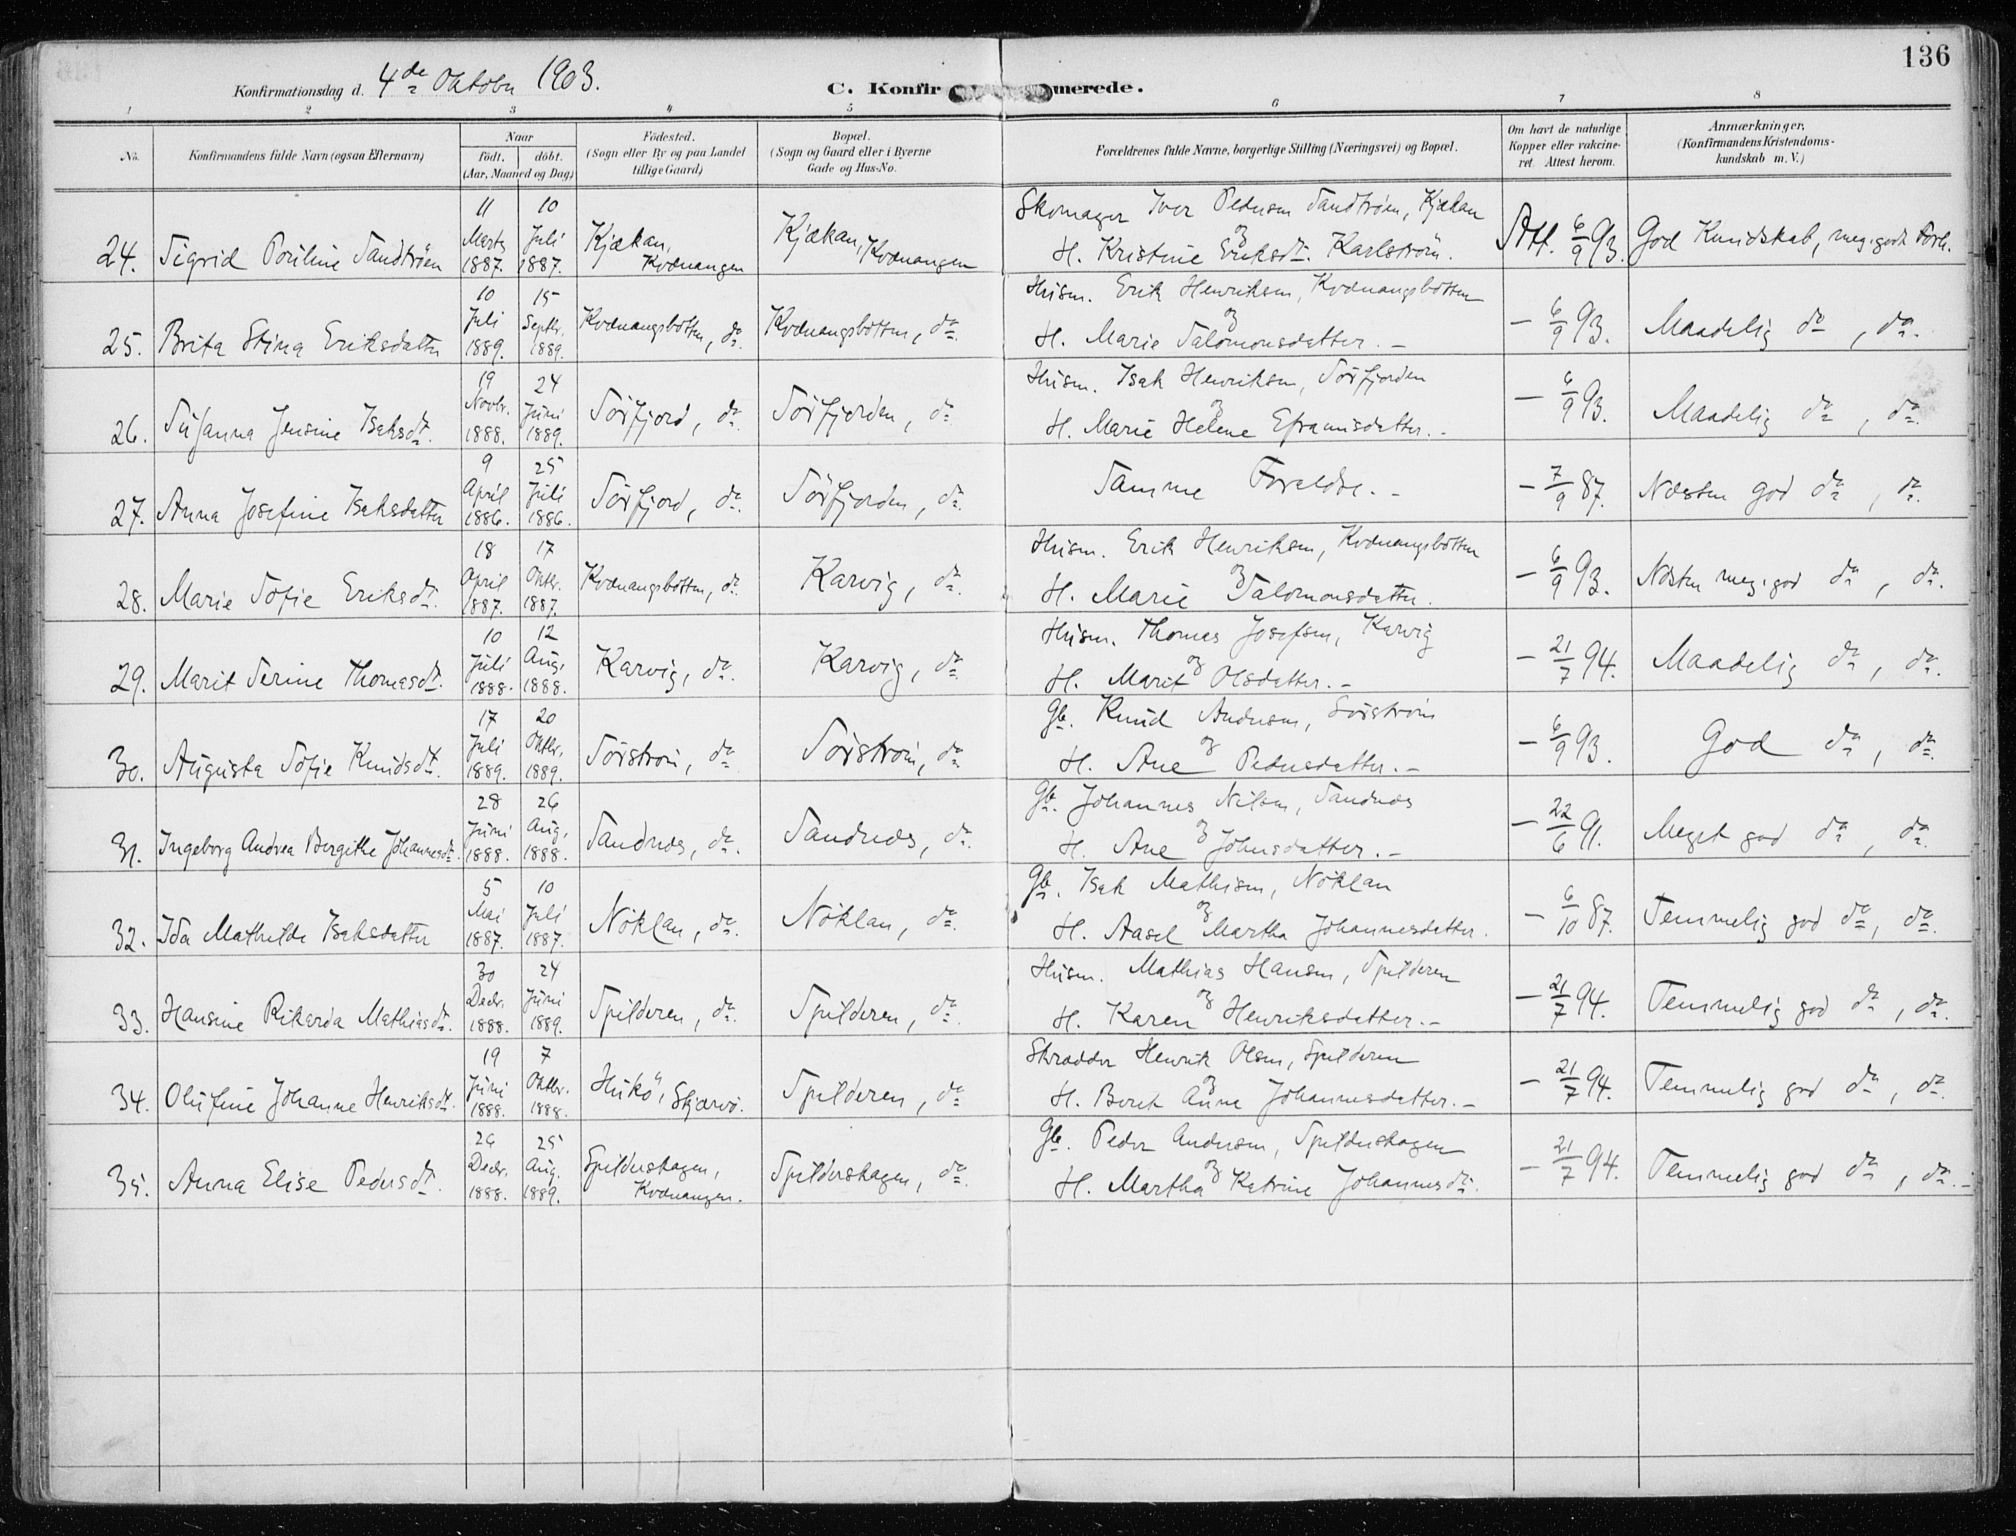 136
Konfirmationsdag d. 4de Oktober 1903.
C. Konfir merede.
1 2 3 4 5 6 7 8
No. Konfirmandens fulde Navn (ogsaa Efternavn)
Naar
födt. döbt.
(Aar, Maaned og Dag)
Födested.
(Sogn eller By og paa Landet
tillige Gaard)
Bopæl.
(Sogn og Gaard eller i Byerne
Gade og Hus-No.
Forældrenes fulde Navne, borgerlige Stilling (Næringsvei) og Bopæl.
Om havt de naturlige
Kopper eller vakcine-
ret. Attest herom.
Anmærkninger.
(Konfirmandens Kristendoms-
kundskab m. V.)
24. Sigrid Pouline Sandtröen
11 Marts 1887. 10 Juli 1887.
Kjækan, Kvænangen
Kjækan, Kvænangen
Skomager Iver Pedersen Sandtröen, Kjækan
og
H. Kristine Eriksdt. Karlström.
Att. 6/9 93.
God Kundskab, meg. godt Forh.
25. Brita Stina Eriksdatter
10 Juli 1889. 15 Septbr. 1889.
Kvænangsbotten, do.
Kvænangsbotten, do.
Husm. Erik Henriksen, Kvænangsbotten
og
H. Marie Salomonsdatter. –
– 6/9 93.
Maadelig do , do.
26. Susanna Jensine Isaksdt.
19 Novbr. 1888. 24 Juni 1889.
Sörfjord, do.
Sörfjorden, do
Husm. Isak Henriksen, Sörfjorden
og
H. Marie Helene Eframsdatter. –
– 6/9 93.
Maadelig do , do.
27. Anna Josefine Isaksdatter
9 April 1886. 25 Juli 1886.
Sörfjord, do.
Sörfjorden, do.
Samme Foreldre. –
– 7/9 87.
Næsten god do , do.
28. Marie Sofie Eriksdt.
18 April 1887. 17 Oktbr. 1887.
Kvænangsbotten, do.
Karvig, do.
Husm. Erik Henriksen, Kvænangsbotten
og
H. Marie Salomonsdatter.
– 6/9 93.
Næsten meg. god do , do.
29. Marit Serine Thomasdt.
10 Juli 1888. 12 Aug. 1888.
Karvig, do.
Karvig, do.
Husm. Thomas Josefsen, Karvig
og
H. Marit Olsdatter. –
– 21/7 94.
Maadelig do , do.
30. Augusta Sofie Knudsdt.
17 Juli 1889. 20 Oktbr. 1889.
Sörström, do.
Sörström, do
Gb. Knud Andersen, Sörström
og
H. Ane Pedersdatter. –
– 6/9 93.
God do , do.
31. Ingeborg Andrea Bergitte Johannesdt.
28 Juni 1888. 26 Aug. 1888.
Sandnes, do.
Sandnes, do.
Gb. Johannes Nilsen, Sandnes
og
H. Ane Johnsdatter. –
– 22/6 91.
Meget god do , do.
32. Ida Mathilde Isaksdatter
5 Mai 1887. 10 Juli 1887.
Nöklan, do.
Nöklan, do.
Gb. Isak Mathisen, Nöklan
og
H. Aasel Martha Johannesdatter.
– 6/10 87.
Temmelig god do, do.
33. Hansine Rikarda Mathiasdt.
30 Decbr. 1888. 24 Juni 1889.
Spilderen, do.
Spilderen, do.
Husm. Mathias Hansen, Spilderen
og
H. Karen Henriksdatter. –
– 21/7 94.
Temmelig god do , do.
34. Olufine Johanne Henriksdt.
19 Juni 1888. 7 Oktbr. 1888.
Hukö, Skjærvö.
Spilderen, do
Skrædder Henrik Olsen, Spilderen
og
H. Beret Anne Johannesdatter. –
– 21/7 94.
Temmelig god do , do.
35. Anna Elise Pedersdt.
26 Decbr. 1888. 25 Aug. 1889.
Spildershagen, Kvænangen.
Spildershagen, do.
Gb. Peder Andersen, Spildershagen
og
H. Martha Katrine Johannesdt.
– 21/7 94.
Temmelig god do , do. –